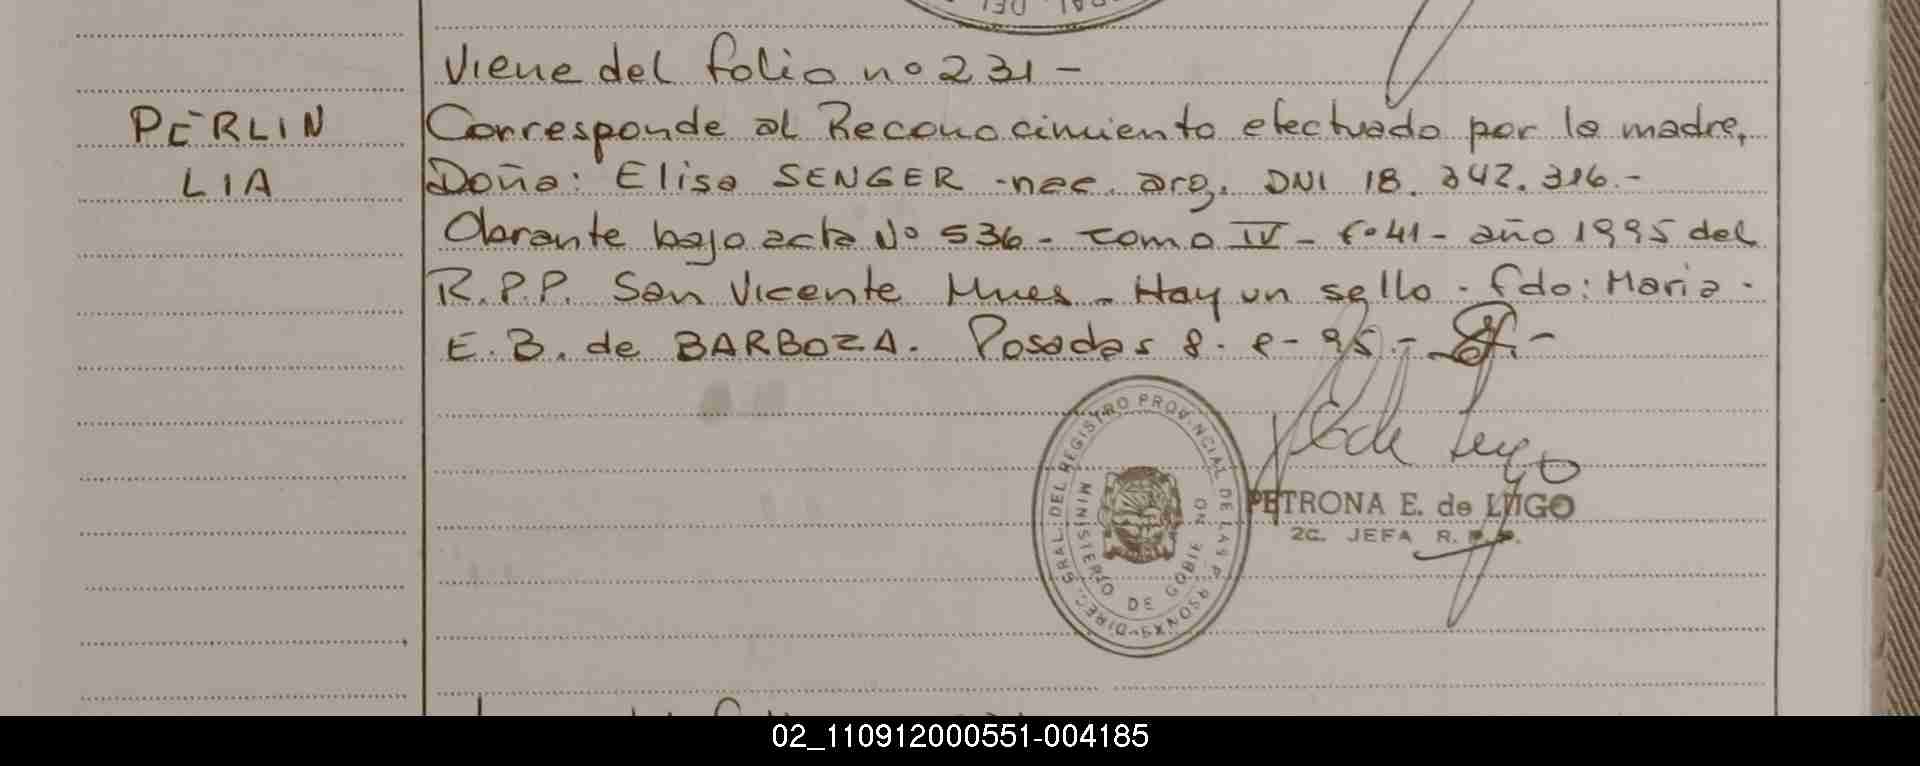 Viene del folio nº 231 -
PERLIN
LIA
Corresponde al Reconocimiento efectuado por la madre,
Doña: Elisa SENGER - nac. arg. DNI 18. 342. 316.-
Obrante bajo acta Nº 536 - tomo IV - Fº 41 - año 1995 del
R.P.P. San Vicente Mnes - Hay un sello - fdo: Maria -
E. B. de BARBOZA. Posadas 8 - 95 -
DIREC. GRAL. DEL REGISTRO PROVINCIAL DE LAS PERSONAS
MINISTERIO DE GOBIERNO
PETRONA E. de LUGO
2C. JEFA R. P. P.
02_110912000551-004185